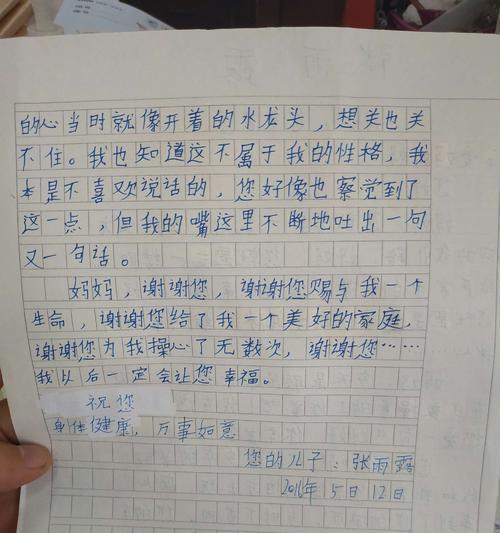 的心当时就像开着的水龙头，想关也关
不住。我也知道这不属于我的性格，我
本是不喜欢说话的，您好像也察觉到了
这一点，但我的嘴这里不断地吐出一句
又一句话。
妈妈，谢谢您，谢谢您赐与我一个
生命，谢谢您给了我一个美好的家庭，
谢谢您为我操心了无数次，谢谢您……
我以后一定会让您幸福。
祝您
身体健康，万事如意
您的儿子：张雨露
2016年5月12日